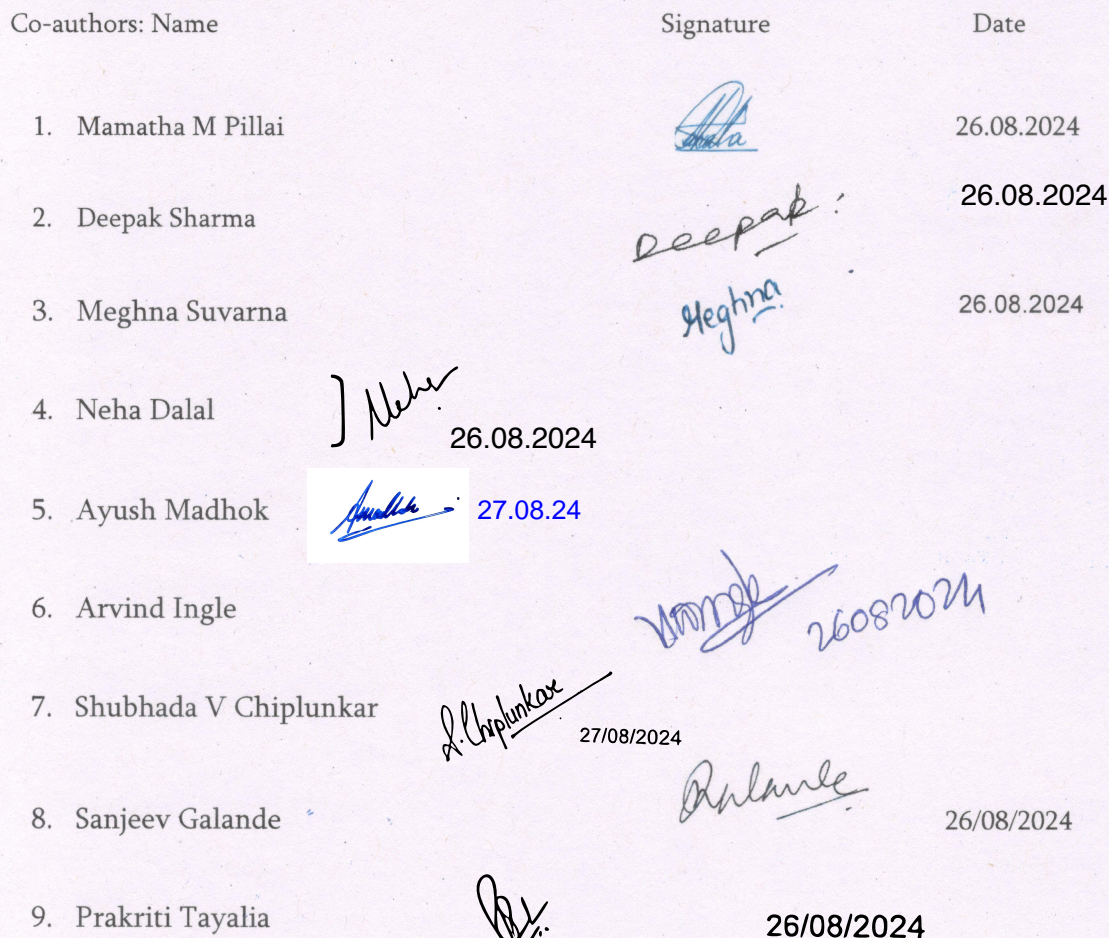 Co-authors: Name Signature Date
1. Mamatha M Pillai 26.08.2024
2. Deepak Sharma Deepak 26.08.2024
3. Meghna Suvarna Meghna 26.08.2024
4. Neha Dalal ] Neha 26.08.2024
5. Ayush Madhok 27.08.24
6. Arvind Ingle 26082024
7. Shubhada V Chiplunkar S. Chiplunkar 27/08/2024
8. Sanjeev Galande 26/08/2024
9. Prakriti Tayalia 26/08/2024